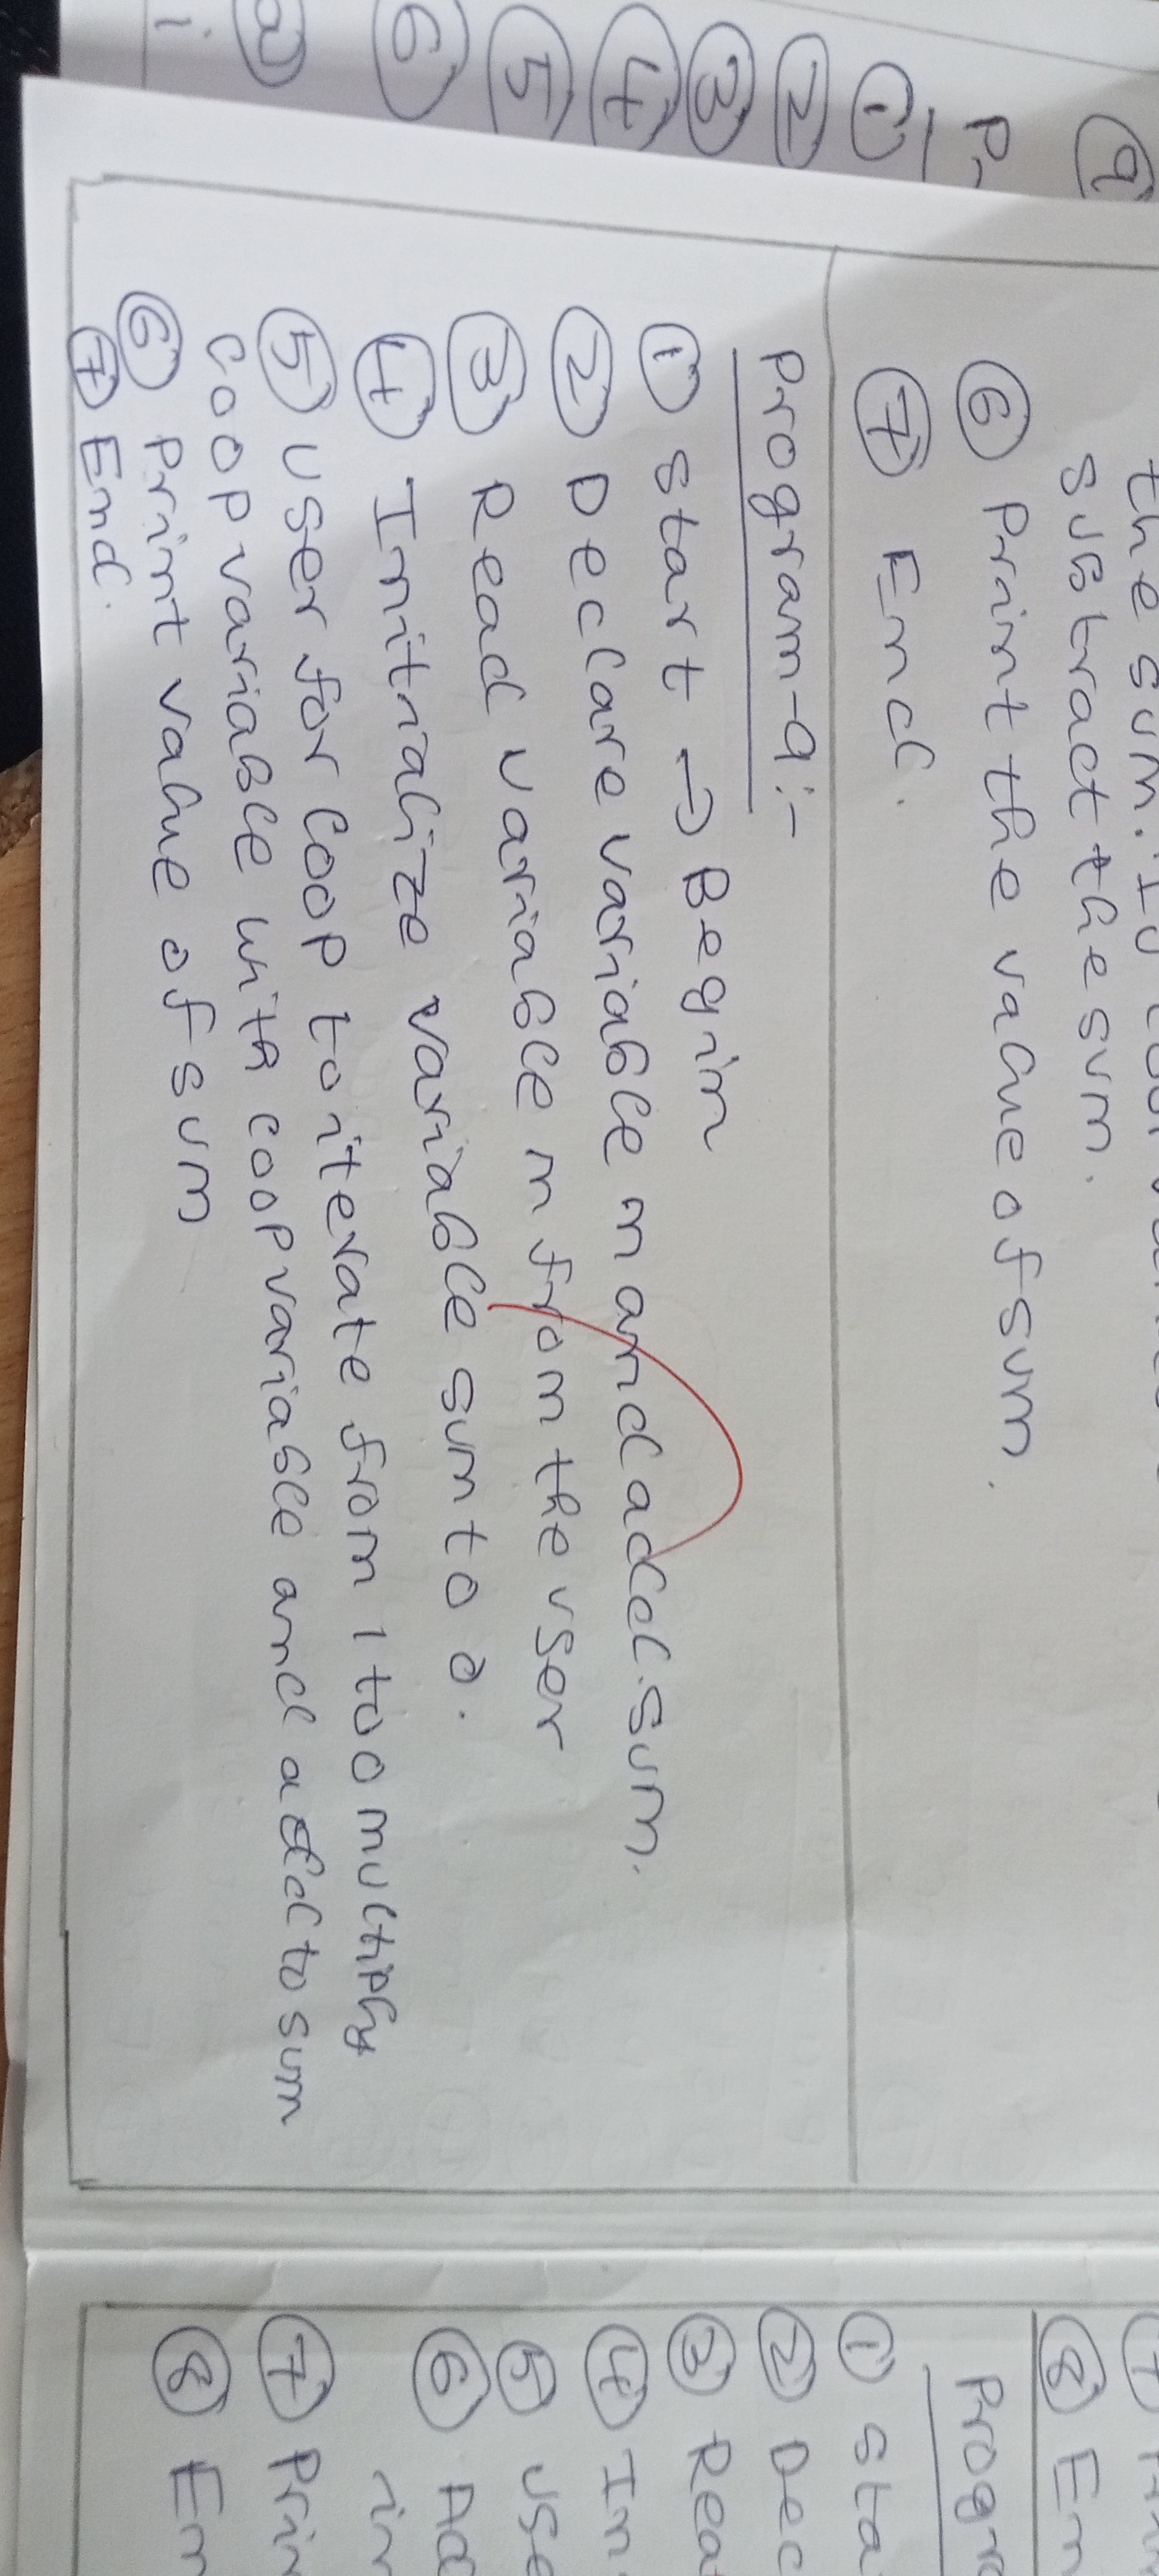 the sum.
substract the sum.
⑥ Print the value of sum.
⑦ End.
Program-9:-
① start → Begin
② Declare variable n and add sum.
③ Read variable n from the user
④ Initialize variable sum to 0.
⑤ user for loop to iterate from 1 to 0 multiply
loop variable with loop variable and add to sum
⑥ Print value of sum
⑦ End.
⑨
①
②
③
④
⑤
⑥
⑧
①
②
③
④
⑤
⑥
⑦
⑧